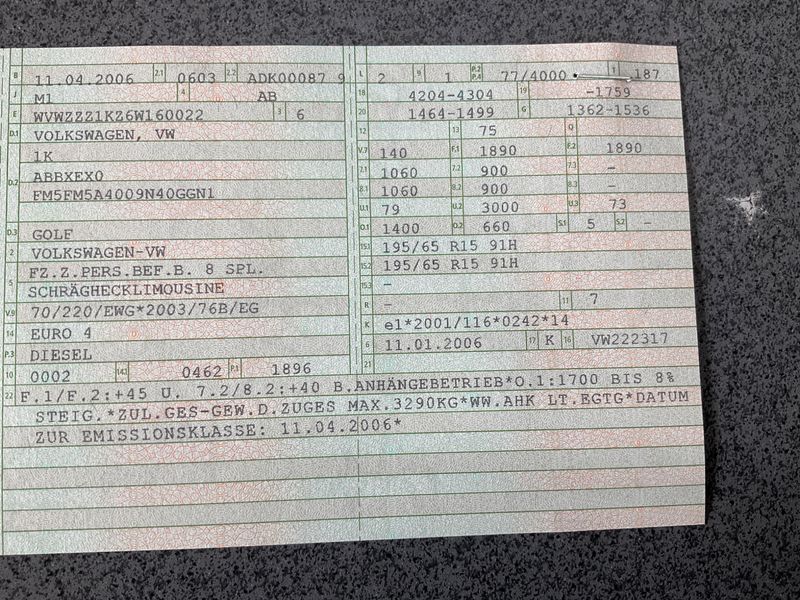 B 11.04.2006 2.1 0603 2.2 ADK00087 9
J M1 4 AB
E WVWZZZ1KZ6W160022 3 6
D.1 VOLKSWAGEN, VW
1K
D.2 ABBXEX0
FM5FM5A4009N40GGN1
D.3 GOLF
2 VOLKSWAGEN-VW
5 FZ.Z.PERS.BEF.B. 8 SPL.
SCHRÄGHECKLIMOUSINE
V.9 70/220/EWG*2003/76B/EG
14 EURO 4
P.3 DIESEL
10 0002 14.1 0462 P.1 1896
L 2 9 1 P.2 P.4 77/4000 T 187
18 4204-4304 19 -1759
20 1464-1499 G 1362-1536
12 13 75 Q
V.7 140 F.1 1890 F.2 1890
7.1 1060 7.2 900 7.3 -
8.1 1060 8.2 900 8.3 -
U.1 79 U.2 3000 U.3 73
O.1 1400 O.2 660 S.1 5 S.2 -
15.1 195/65 R15 91H
15.2 195/65 R15 91H
15.3 -
R - 11 7
K e1*2001/116*0242*14
6 11.01.2006 17 K 16 VW222317
21
22 F.1/F.2:+45 U. 7.2/8.2:+40 B.ANHÄNGEBETRIEB*O.1:1700 BIS 8%
STEIG.*ZUL.GES-GEW.D.ZUGES MAX.3290KG*WW.AHK LT.EGTG*DATUM
ZUR EMISSIONSKLASSE: 11.04.2006*